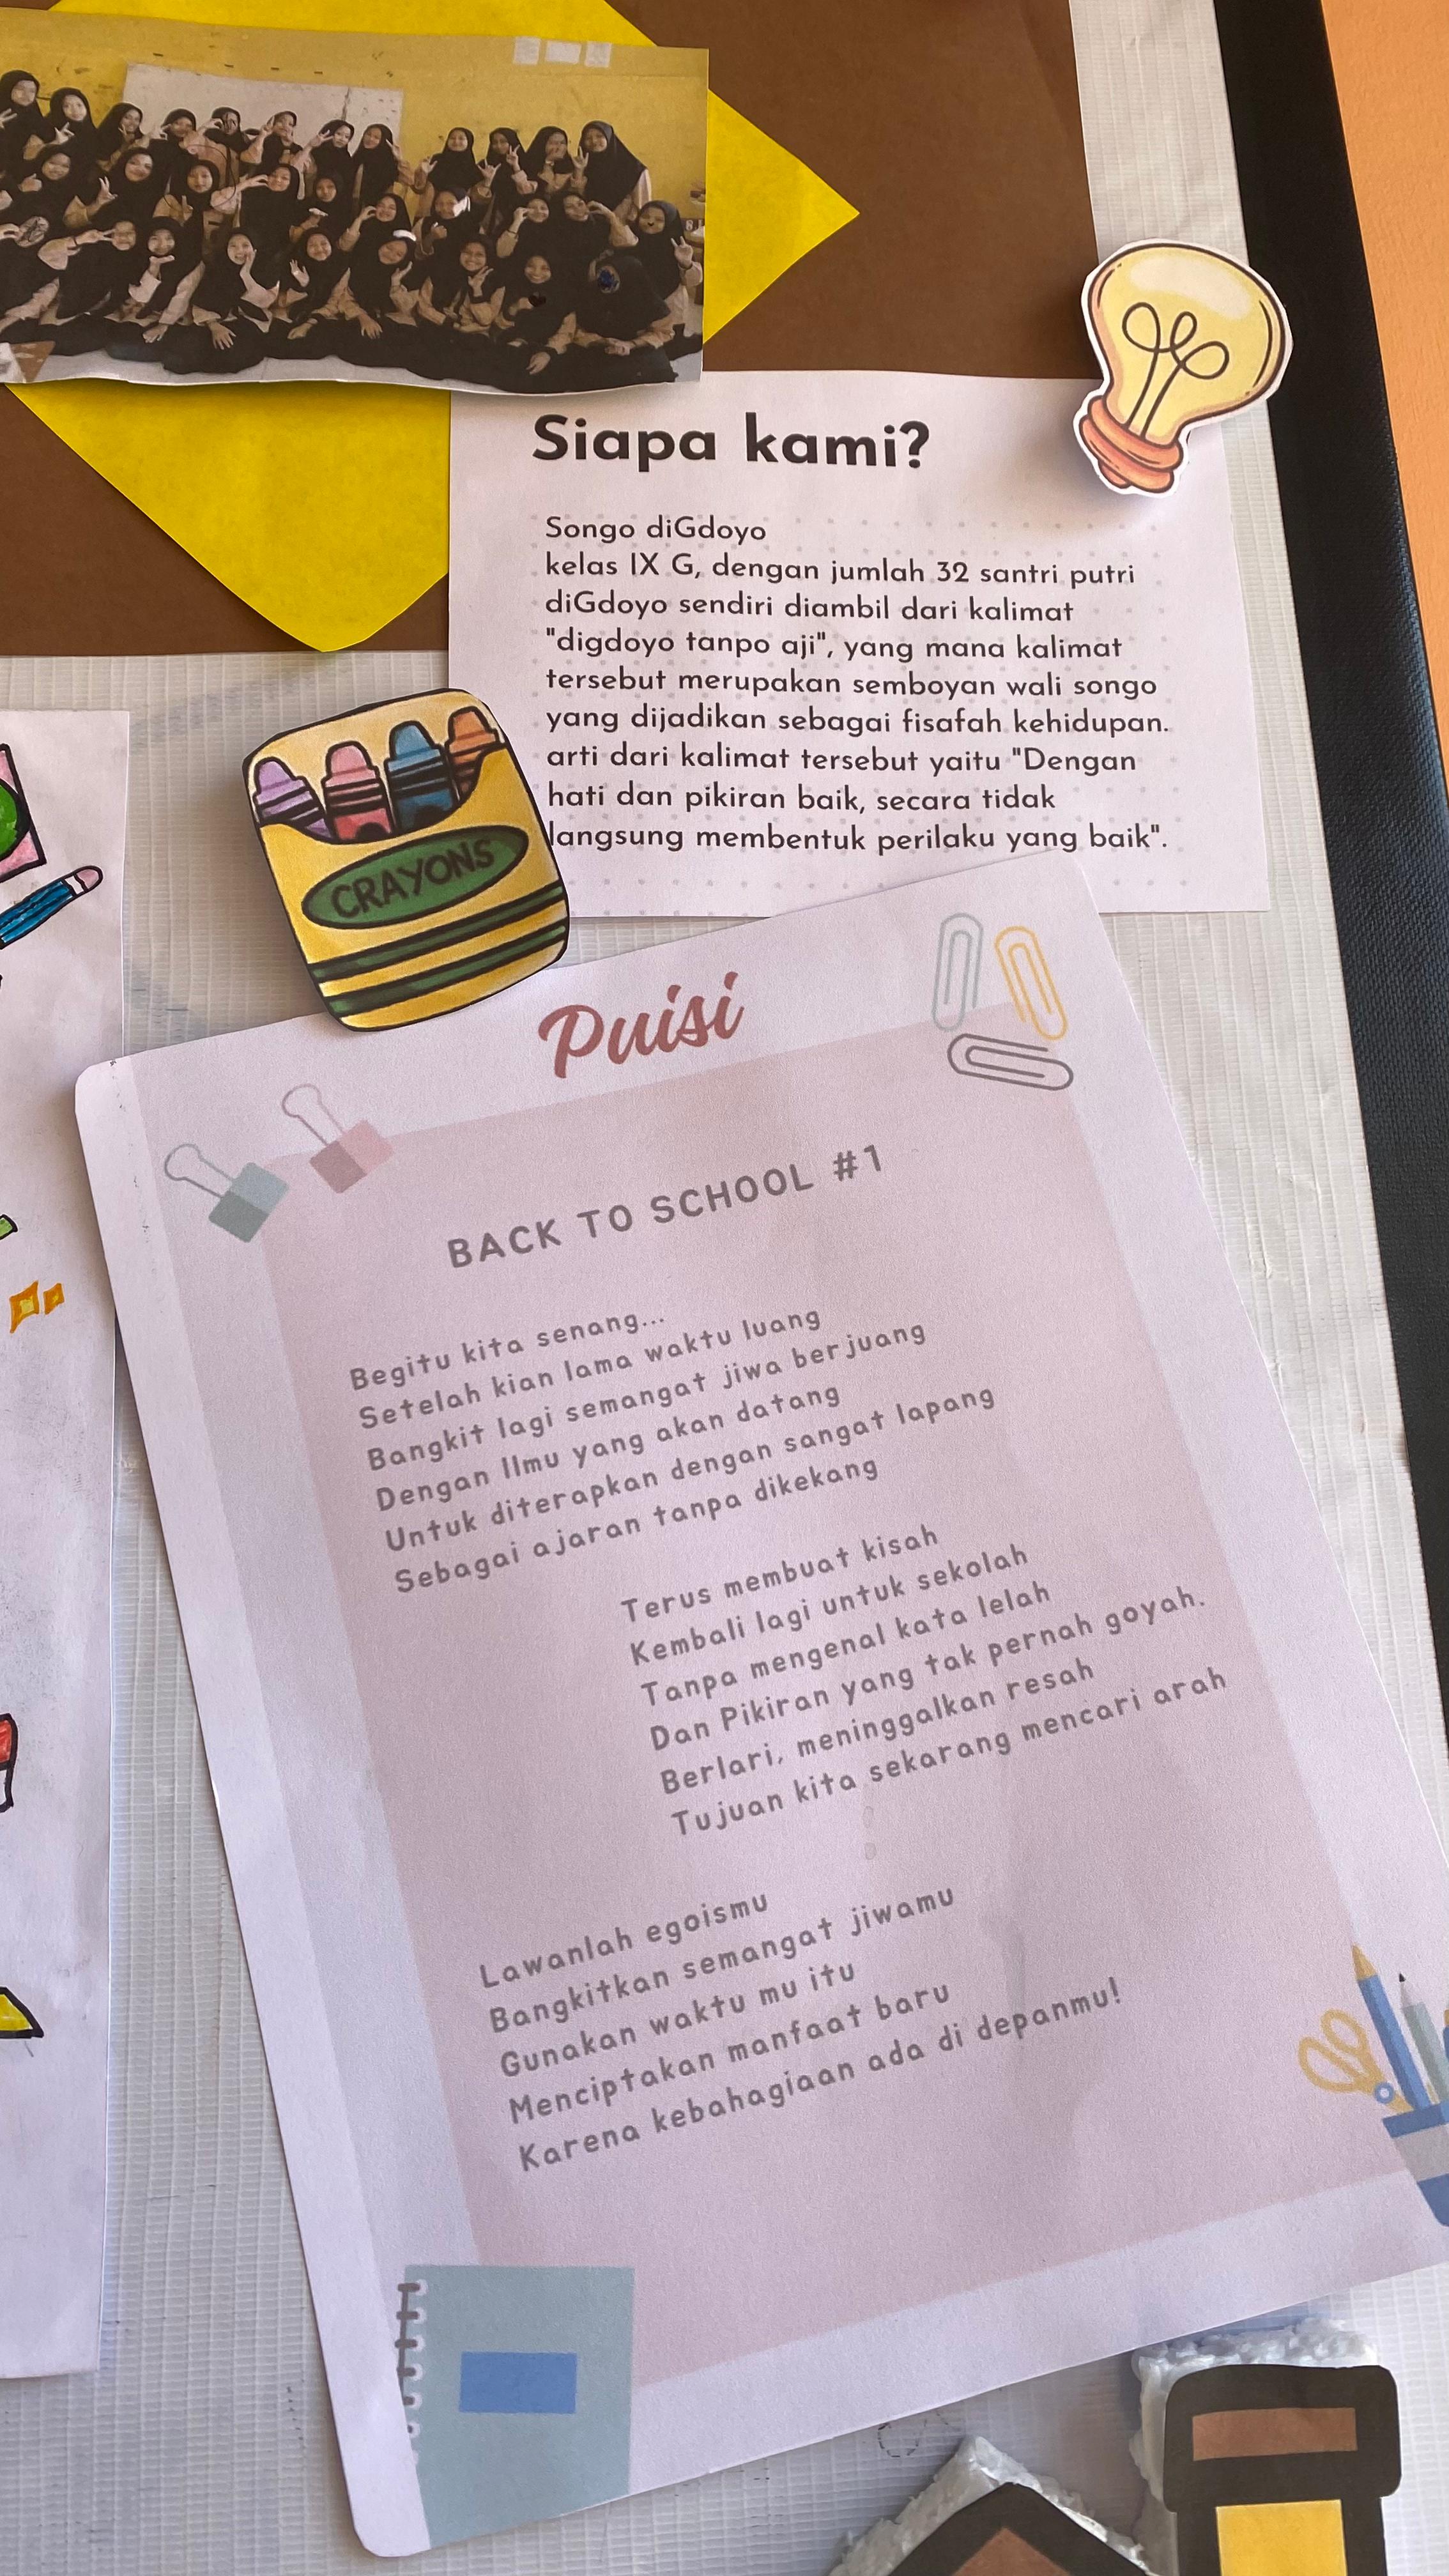 Siapa kami?
Songo diGdoyo
kelas IX G, dengan jumlah 32 santri putri
diGdoyo sendiri diambil dari kalimat
"digdoyo tanpo aji", yang mana kalimat
tersebut merupakan semboyan wali songo
yang dijadikan sebagai fisafah kehidupan.
arti dari kalimat tersebut yaitu "Dengan
hati dan pikiran baik, secara tidak
langsung membentuk perilaku yang baik".
CRAYONS
Puisi
BACK TO SCHOOL #1
Begitu kita senang...
Setelah kian lama waktu luang
Bangkit lagi semangat jiwa berjuang
Dengan Ilmu yang akan datang
Untuk diterapkan dengan sangat lapang
Sebagai ajaran tanpa dikekang
Terus membuat kisah
Kembali lagi untuk sekolah
Tanpa mengenal kata lelah
Dan Pikiran yang tak pernah goyah.
Berlari, meninggalkan resah
Tujuan kita sekarang mencari arah
Lawanlah egoismu
Bangkitkan semangat jiwamu
Gunakan waktu mu itu
Menciptakan manfaat baru
Karena kebahagiaan ada di depanmu!